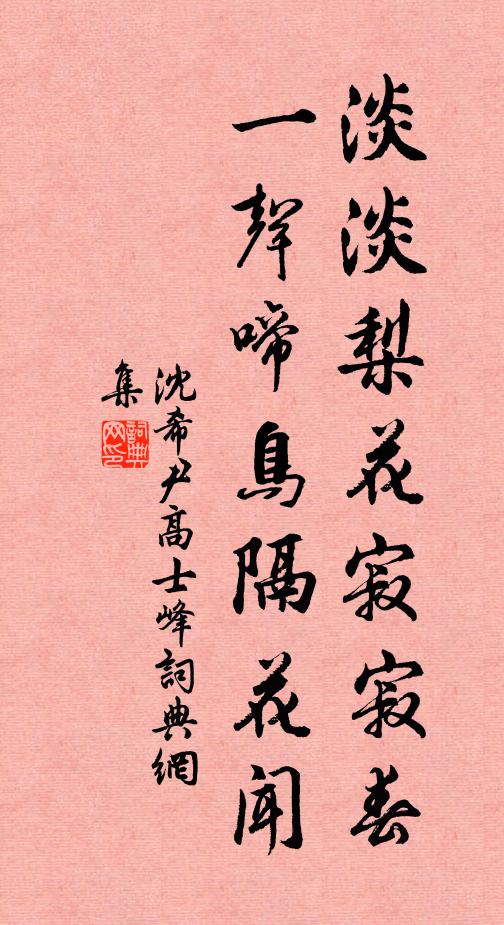 淡淡梨花寂寂春
一聲啼鳥隔花聞
沈希尹高士峰詞典網
集
詞典
网印